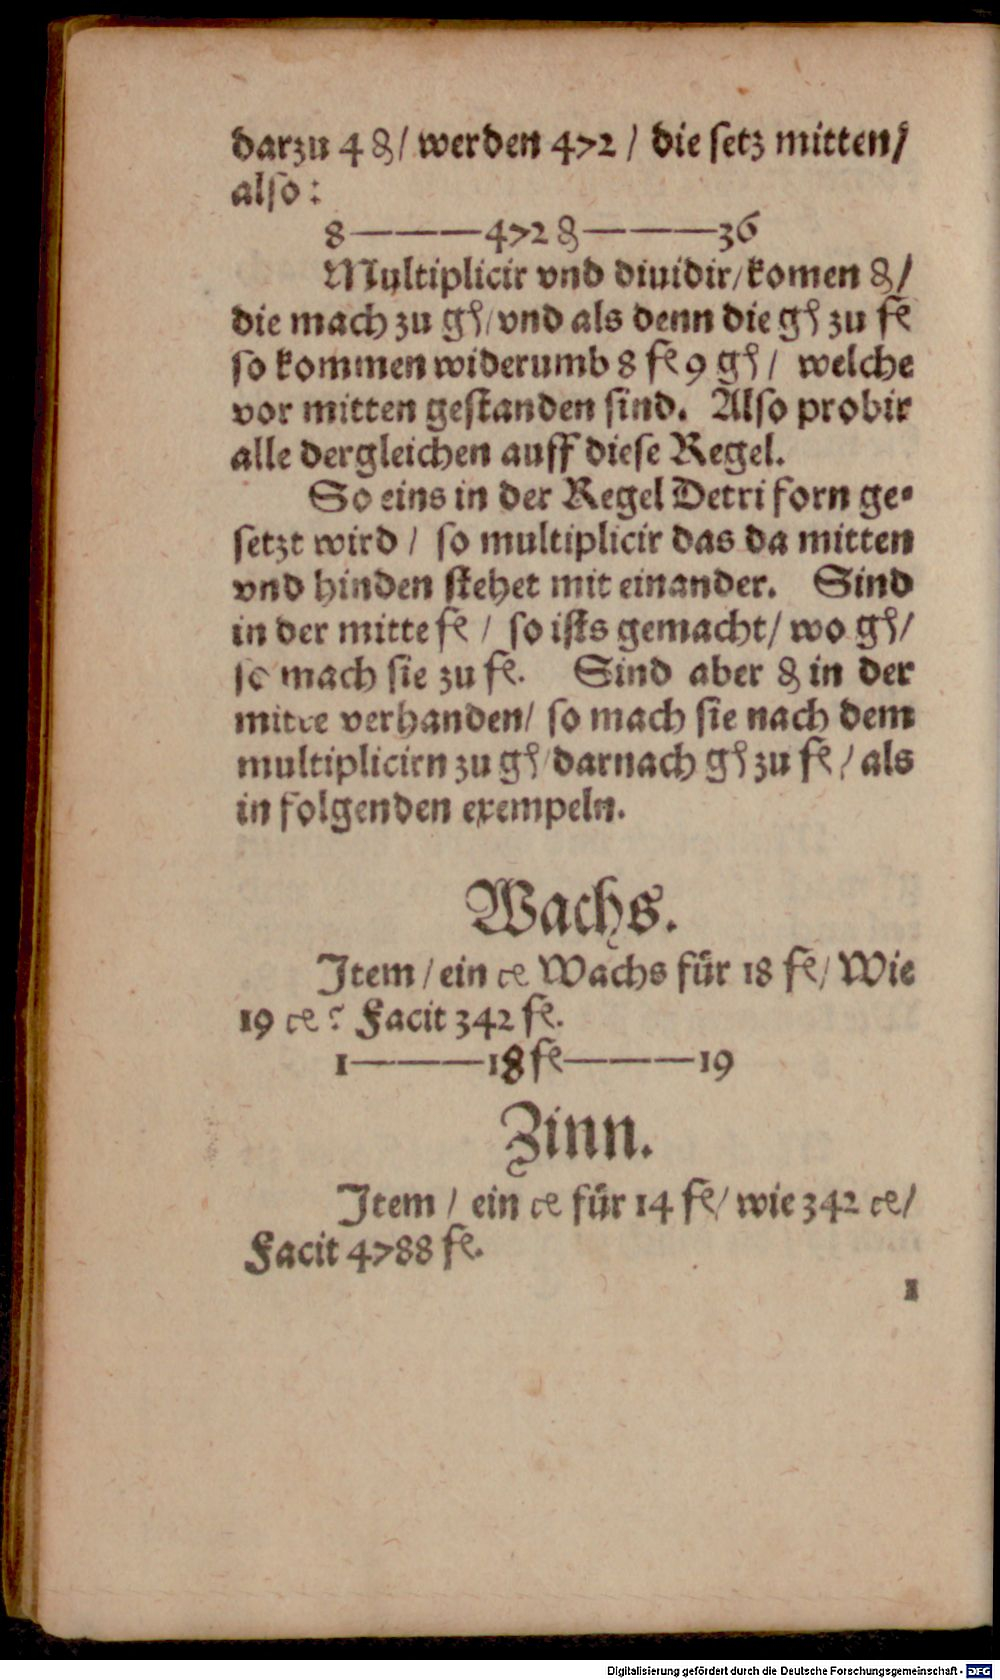 darzu 4 ₰/ werden 472 / die setz mitten/
also:
8———472 ₰———36
Multiplicir vnd diuidir/komen ₰/
die mach zu gꝭ/vnd als denn die gꝭ zu fl
so kommen widerumb 8 fl 9 gꝭ/ welche
vor mitten gestanden sind. Also probir
alle dergleichen auff diese Regel.
So eins in der Regel Detri forn ge-
setzt wird / so multiplicir das da mitten
vnd hinden stehet mit einander. Sind
in der mitte fl / so ists gemacht/ wo gꝭ/
so mach sie zu fl. Sind aber ₰ in der
mitte verhanden/ so mach sie nach dem
multiplicirn zu gꝭ/darnach gꝭ zu fl/ als
in folgenden exempeln.
Wachs.
Item / ein ce Wachs für 18 fl/ Wie
19 ce? Facit 342 fl.
1———18 fl———19
Zinn.
Item / ein ce für 14 fl/ wie 342 ce/
Facit 4788 fl.
1
Digitalisierung gefördert durch die Deutsche Forschungsgemeinschaft - DFG